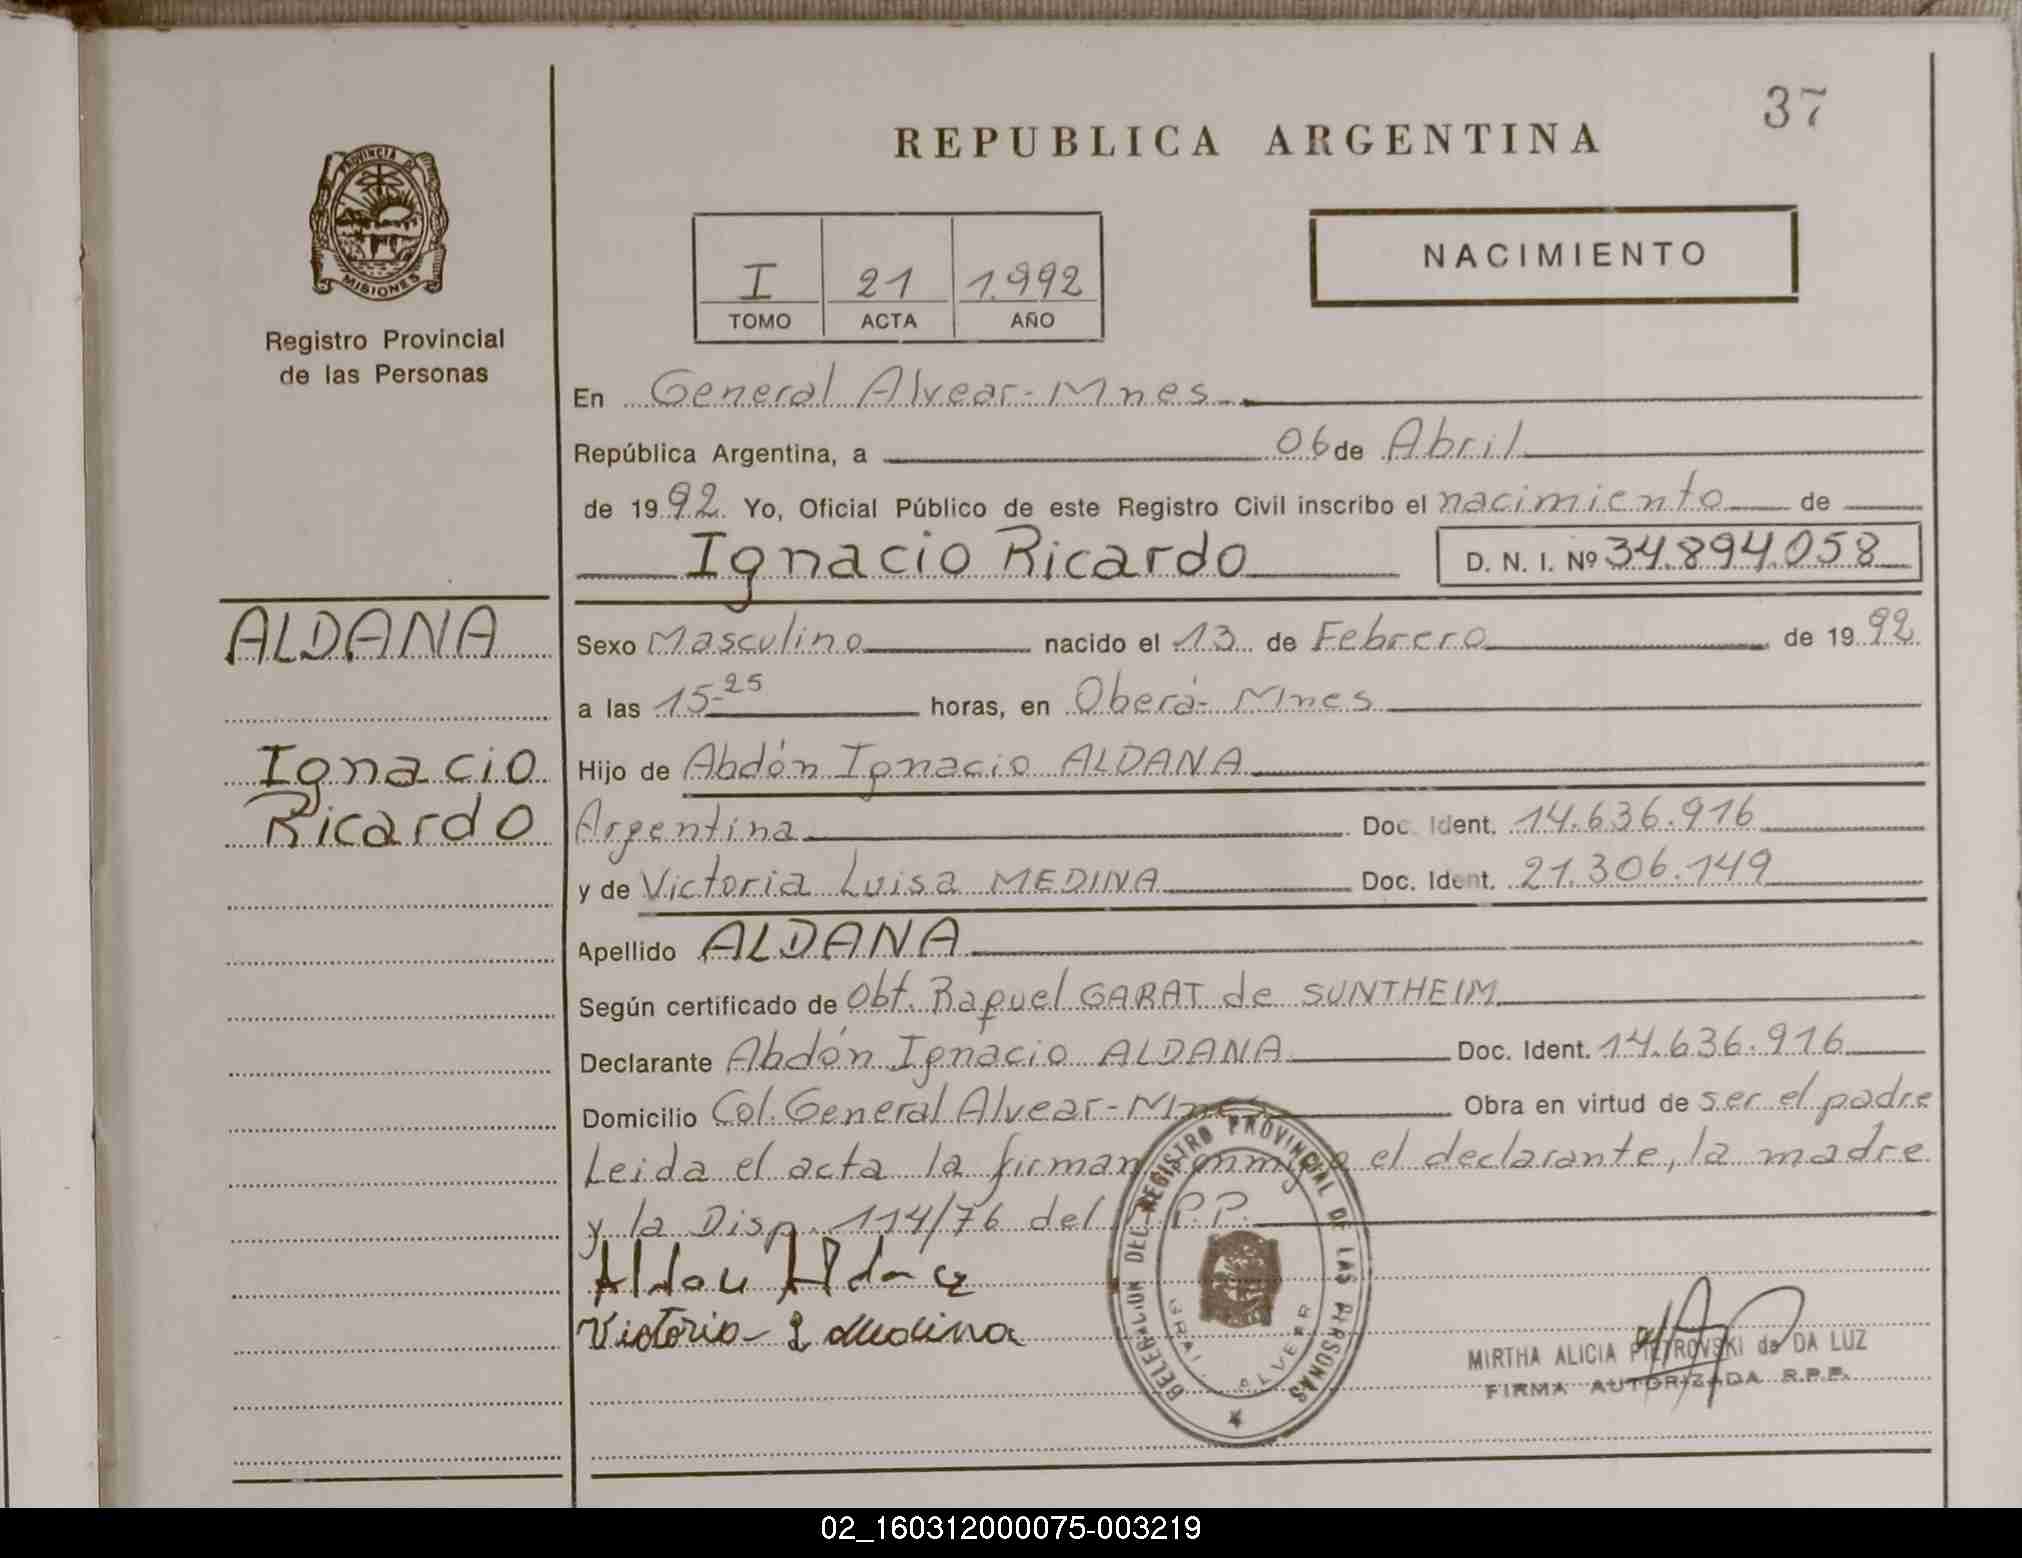 37
REPUBLICA ARGENTINA
PROVINCIA DE
MISIONES
Registro Provincial
de las Personas
NACIMIENTO
I 21 1.992
TOMO ACTA AÑO
En General Alvear - Mnes
República Argentina, a 06 de Abril
de 1992 Yo, Oficial Público de este Registro Civil inscribo el nacimiento de
Ignacio Ricardo D. N. I. Nº 34.894.058
ALDANA
Ignacio
Ricardo
Sexo Masculino nacido el 13 de Febrero de 1992
a las 15-25 horas, en Oberá - Mnes
Hijo de Abdón Ignacio ALDANA
Argentina Doc. Ident. 14.636.916
y de Victoria Luisa MEDINA Doc. Ident. 21.306.149
Apellido ALDANA
Según certificado de Obt. Raquel GARAT de SUNTHEIM
Declarante Abdón Ignacio ALDANA Doc. Ident. 14.636.916
Domicilio Col. General Alvear - Mnes Obra en virtud de ser el padre
Leida el acta la firman conmigo el declarante, la madre
y la Disp. 114/76 del R.P.P.
Victoria L Medina
DELEGACION DEL REGISTRO PROVINCIAL DE LAS PERSONAS
GRAL. ALVEAR
MIRTHA ALICIA PIETROVSKI de DA LUZ
FIRMA AUTORIZADA R.P.P.
02_160312000075-003219